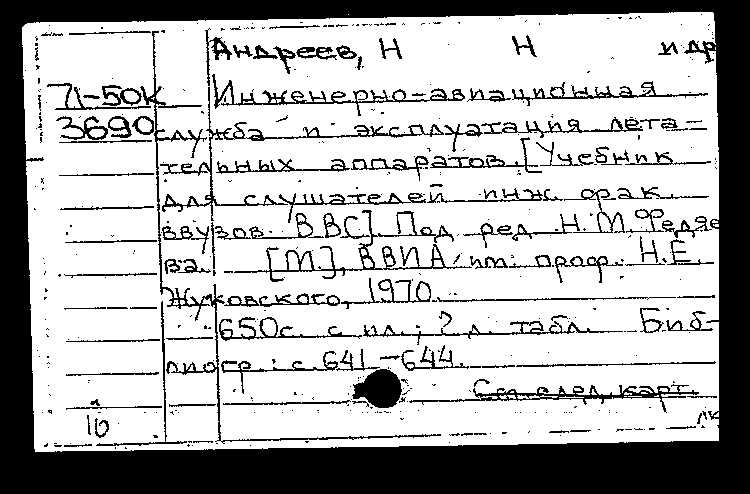 Андреев, Н Н и др
71-50К Инженерно-авиационная
3690 служба и эксплуатация лета-
тельных аппаратов. [Учебник
для слушателей инж. фак.
ввузов ВВС]. Под ред Н.М. Федяе
ва. [М.], ВВИА им. проф. Н.Е.
Жуковского, 1970.
650с. с ил.; 2 л. табл. Биб-
лиогр.: с. 641-644.
См. след. карт.
10
лк